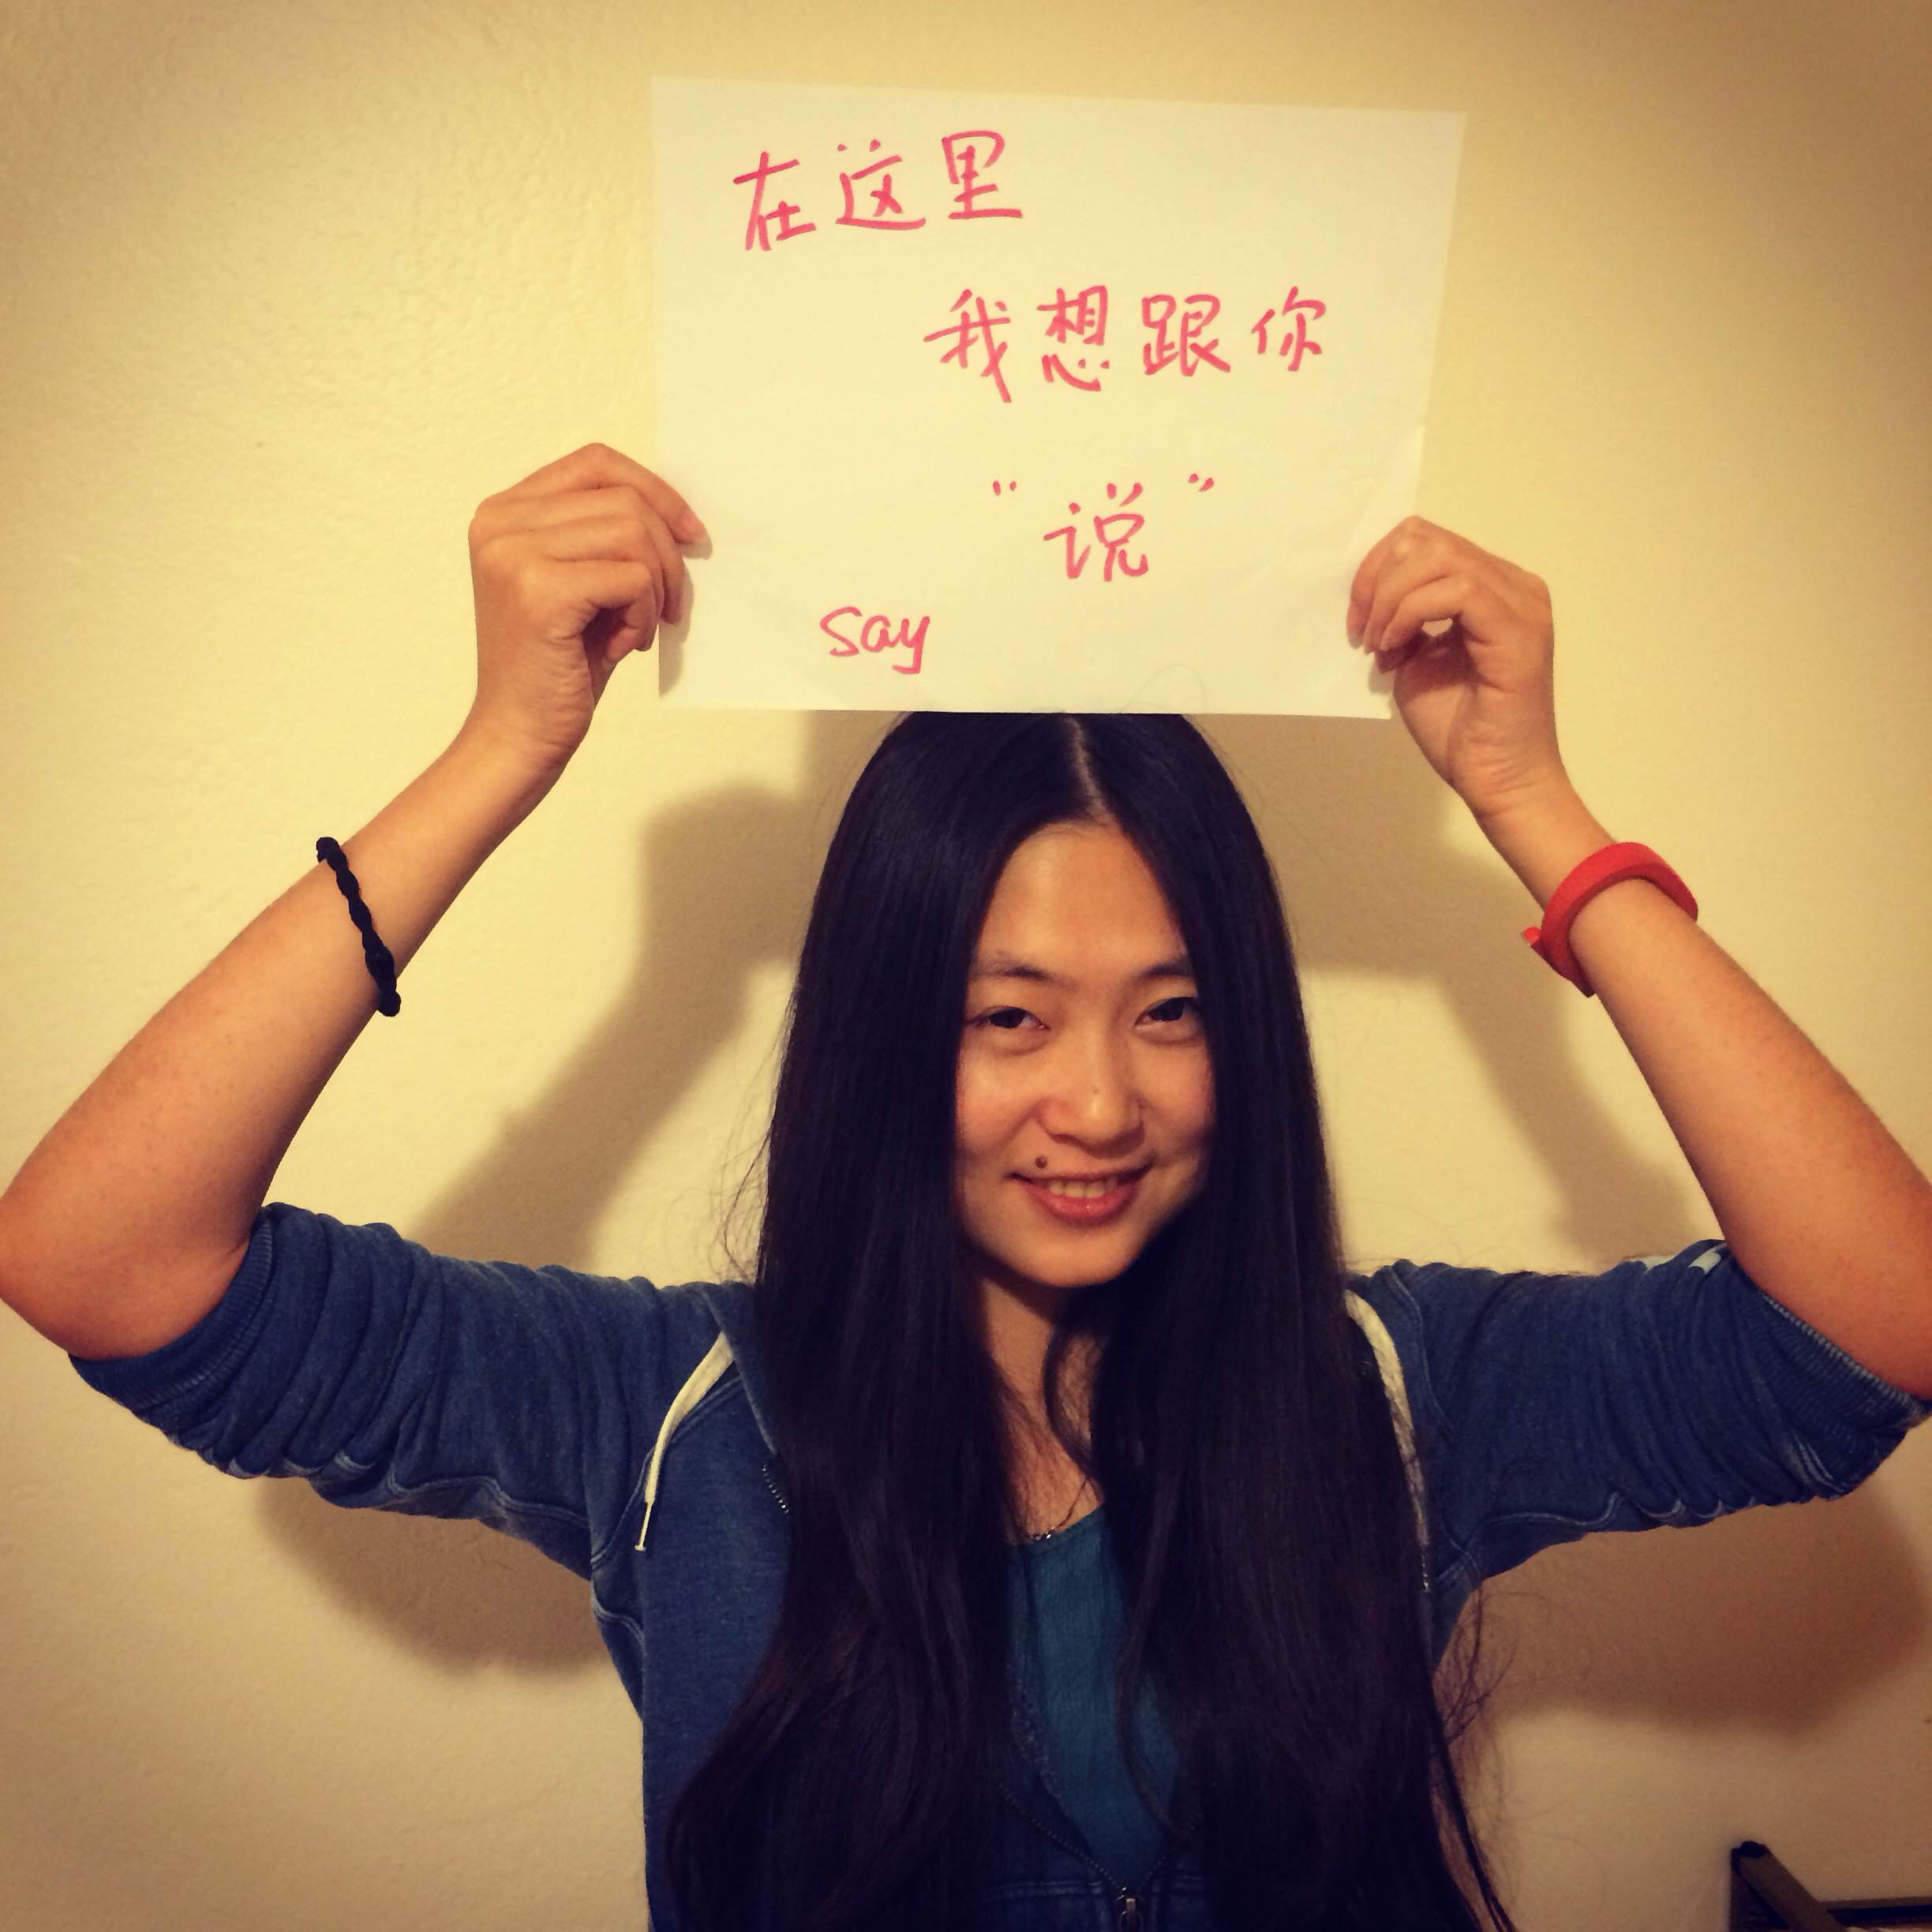 在这里
我想跟你
“说”
say